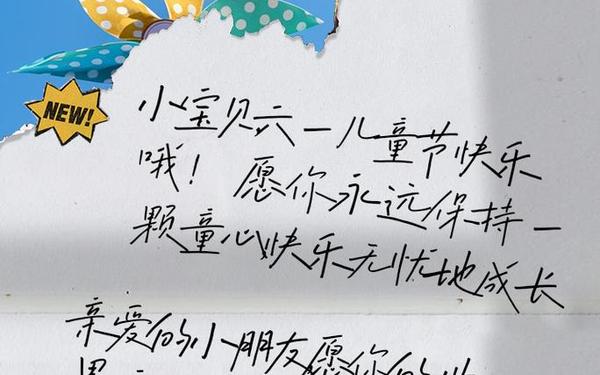 NEW!
小宝贝六一儿童节快乐
哦！ 愿你永远保持一
颗童心快乐无忧地成长
亲爱的小朋友愿你的